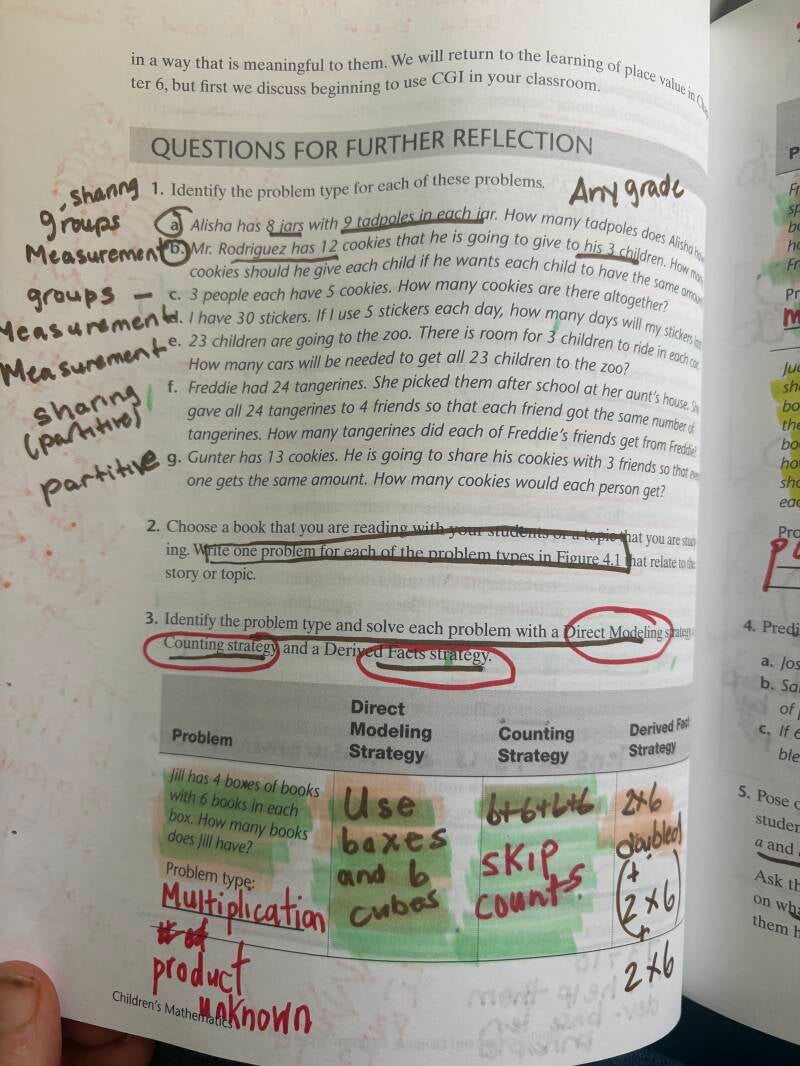 in a way that is meaningful to them. We will return to the learning of place value in
ter 6, but first we discuss beginning to use CGI in your classroom.
QUESTIONS FOR FURTHER REFLECTION
1. Identify the problem type for each of these problems.
Any grade
sharing
groups
a. Alisha has 8 jars with 9 tadpoles in each jar. How many tadpoles does Alisha
Measurement
b. Mr. Rodriguez has 12 cookies that he is going to give to his 3 children. How many
cookies should he give each child if he wants each child to have the same
groups –
c. 3 people each have 5 cookies. How many cookies are there altogether?
Measurement
d. I have 30 stickers. If I use 5 stickers each day, how many days will my stickers
Measurement
e. 23 children are going to the zoo. There is room for 3 children to ride in each car.
How many cars will be needed to get all 23 children to the zoo?
sharing
(partitive)
f. Freddie had 24 tangerines. She picked them after school at her aunt's house. She
gave all 24 tangerines to 4 friends so that each friend got the same number of
tangerines. How many tangerines did each of Freddie's friends get from Freddie?
partitive
g. Gunter has 13 cookies. He is going to share his cookies with 3 friends so that
one gets the same amount. How many cookies would each person get?
2. Choose a book that you are reading with your students or a topic that you are
ing. Write one problem for each of the problem types in Figure 4.1 that relate to the
story or topic.
3. Identify the problem type and solve each problem with a Direct Modeling strategy,
Counting strategy and a Derived Facts strategy.
Problem
Direct
Modeling
Strategy
Counting
Strategy
Derived Fact
Strategy
Jill has 4 boxes of books
with 6 books in each
box. How many books
does Jill have?
Problem type:
Multiplication
product
unknown
Use
boxes
and 6
cubes
6+6+6+6
skip
counts
2×6
doubled
(+
2×6)
+
2×6
Children's Mathematics
4. Predi
a. Jos
b. Sa
of
c. If 6
ble
5. Pose
studen
a and
Ask th
on wha
them h